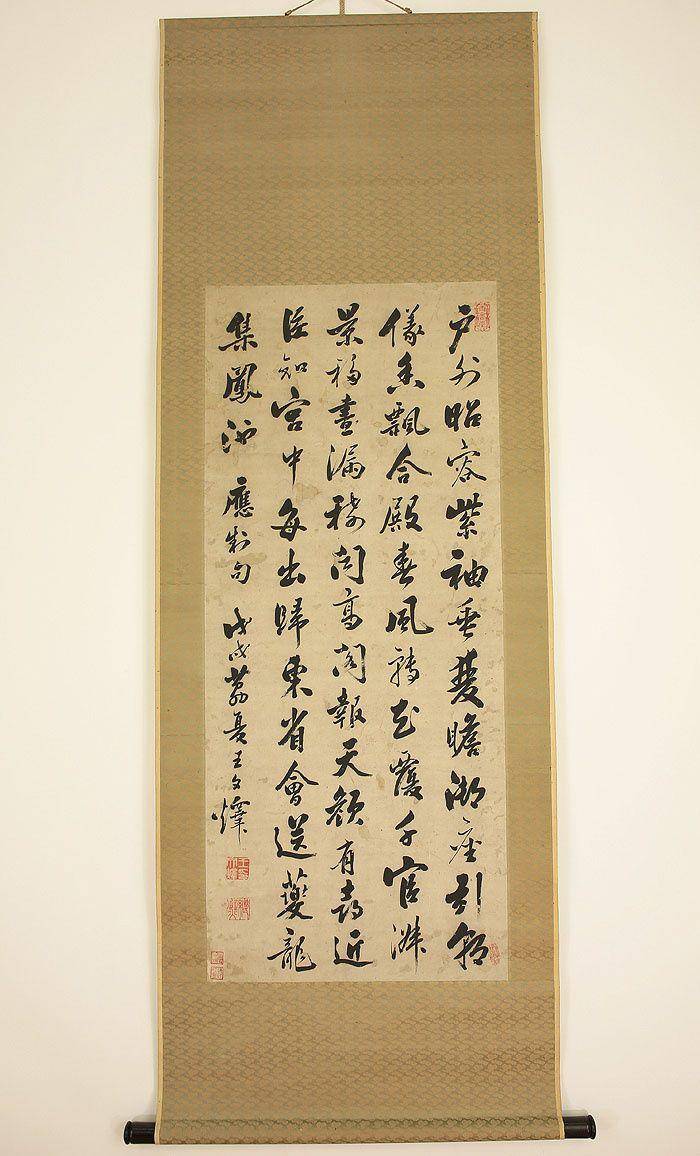 户外昭容紫袖垂雙瞻御座引朝
儀香飄合殿春風轉花覆千官淑
景移晝漏稀聞高閣報天顏有喜近
臣知宮中每出歸東省會送夔龍
集鳳池 應制句 戊戌荔夏王文